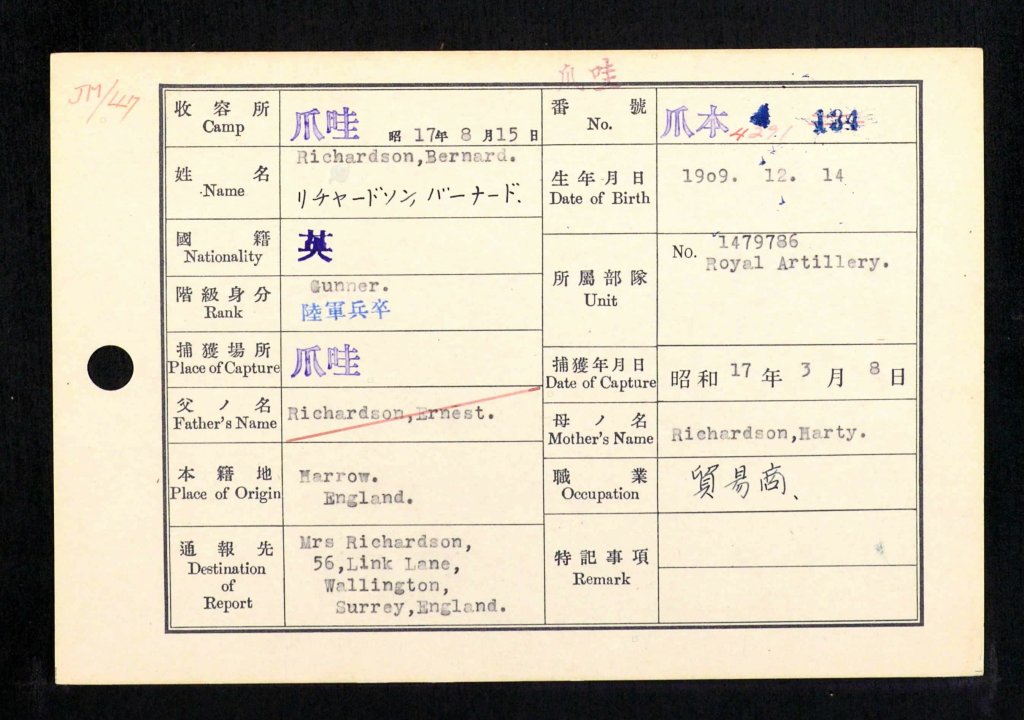 爪哇
JM/47
收容所
Camp
爪哇 昭17年8月15日
番號
No.
爪本 4291 134
姓名
Name
Richardson,Bernard.
リチャードソン,バーナード.
生年月日
Date of Birth
1909. 12. 14
國籍
Nationality
英
所屬部隊
Unit
No. 1479786
Royal Artillery.
階級身分
Rank
Gunner.
陸軍兵卒
捕獲場所
Place of Capture
爪哇
捕獲年月日
Date of Capture
昭和17年3月8日
父ノ名
Father's Name
Richardson,Ernest.
母ノ名
Mother's Name
Richardson,Harty.
本籍地
Place of Origin
Harrow.
England.
職業
Occupation
貿易商、
通報先
Destination
of
Report
Mrs Richardson,
56,Link Lane,
Wallington,
Surrey,England.
特記事項
Remark